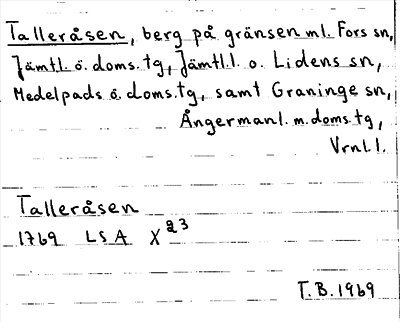 Talleråsen, berg på gränsen ml. Fors sn,
Jämtl. ö. doms.tg, Jämtl.l. o. Lidens sn,
Medelpads ö. doms.tg, samt Graninge sn,
Ångermanl. m. doms.tg,
Vrnl.l.
Talleråsen
1769 LSA X23
T.B. 1969